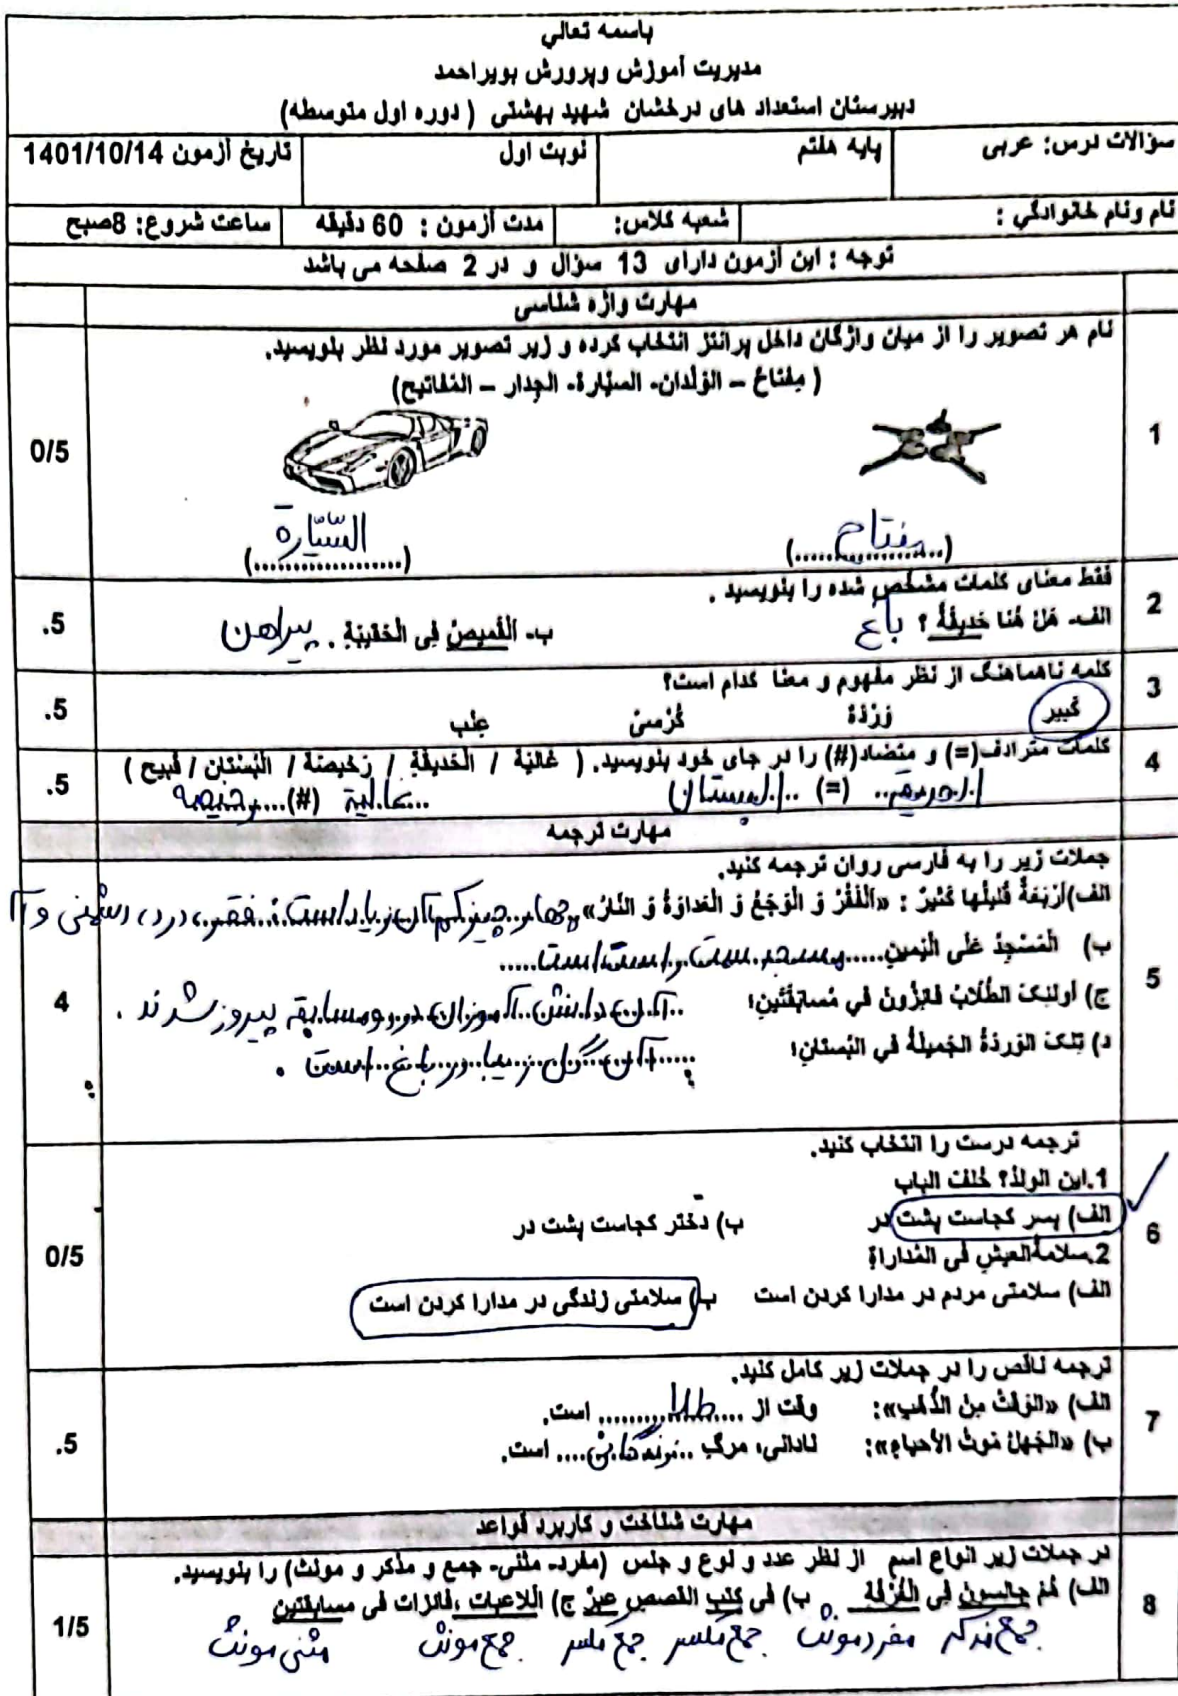 باسمه تعالي
مدیریت آموزش وپرورش بویراحمد
دبیرستان استعداد های درخشان شهید بهشتی ( دوره اول متوسطه)
سؤالات درس: عربی پایه هفتم نوبت اول تاریخ آزمون 1401/10/14
نام ونام خانوادگي : شعبه کلاس: مدت آزمون : 60 دقیقه ساعت شروع: 8صبح
توجه : این آزمون دارای 13 سؤال و در 2 صفحه می باشد
مهارت واژه شناسی
1 نام هر تصویر را از میان واژگان داخل پرانتز انتخاب کرده و زیر تصویر مورد نظر بنویسید. 0/5
( مِفتاحُ – الوَلَدان- السیّارة- الجِدار – المَفاتیح)
(مفتاح) (السّیّارة)
2 فقط معنای کلمات مشخص شده را بنویسید . .5
الف- هَلْ هُنا حَدیقَةُ ؟ باغ ب- اَلْقَمیصُ فِی الْحَقیبَةِ . پیراهن
3 کلمه ناهماهنگ از نظر مفهوم و معنا کدام است؟ .5
کَبیر وَرْدَةُ کُرْسیّ عِنَب
4 کلمات مترادف(=) و متضاد(#) را در جای خود بنویسید. ( غالیَة / الْحَدیقَةِ / رَخیصَة / الْبُسْتان / قَبیح ) .5
الحدیقة (=) البستان غالیة (#) رخیصه
مهارت ترجمه
5 جملات زیر را به فارسی روان ترجمه کنید. 4
الف)أرْبَعَةٌ قَلیلُها کَثیرٌ : «اَلْفَقْرُ وَ الْوَجَعُ وَ الْعَداوَةُ وَ النّارُ» چهار چیز کم آن زیاد است : فقر ، درد ، دشمنی و آ
ب) الْمَسْجِدُ عَلَی الْیَمینِ..... مسجد سمت راست است .....
ج) أولئِکَ الطُّلّابُ فائِزونَ في مُسابَقَتَینِ؛ آن دانش آموزان در دو مسابقه پیروز شدند .
د) تِلْکَ الوَردَةُ الجَمیلَةُ في البُستانِ؛ آن گل زیبا در باغ است .
6 ترجمه درست را انتخاب کنید. 0/5
1.این الولدُ؟ خَلفَ الباب
الف) پسر کجاست پشت در ب) دختر کجاست پشت در
2.سلامةُ العیشِ فی المُداراةِ
الف) سلامتی مردم در مدارا کردن است ب) سلامتی زندگی در مدارا کردن است
7 ترجمه ناقص را در جملات زیر کامل کنید. .5
الف) «الوَقْتُ مِنَ الذَّهَبِ»: وقت از ..... طلا ..... است.
ب) «الجَهلُ مَوتُ الأحیاءِ»: نادانی، مرگ .. زندگان .... است.
مهارت شناخت و کاربرد قواعد
8 در جملات زیر انواع اسم از نظر عدد و نوع و جنس (مفرد- مثنی- جمع و مذکر و مونث) را بنویسید. 1/5
الف) هُمْ جالِسونَ فِي الْغُرْفَة ب) فی کتبِ القصصِ عِبَرٌ ج) اَللاعِبات ،فائزات فی مسابقتین
جمع مذکر مفرد مونث جمع مکسر جمع مکسر جمع مونث مثنی مونث